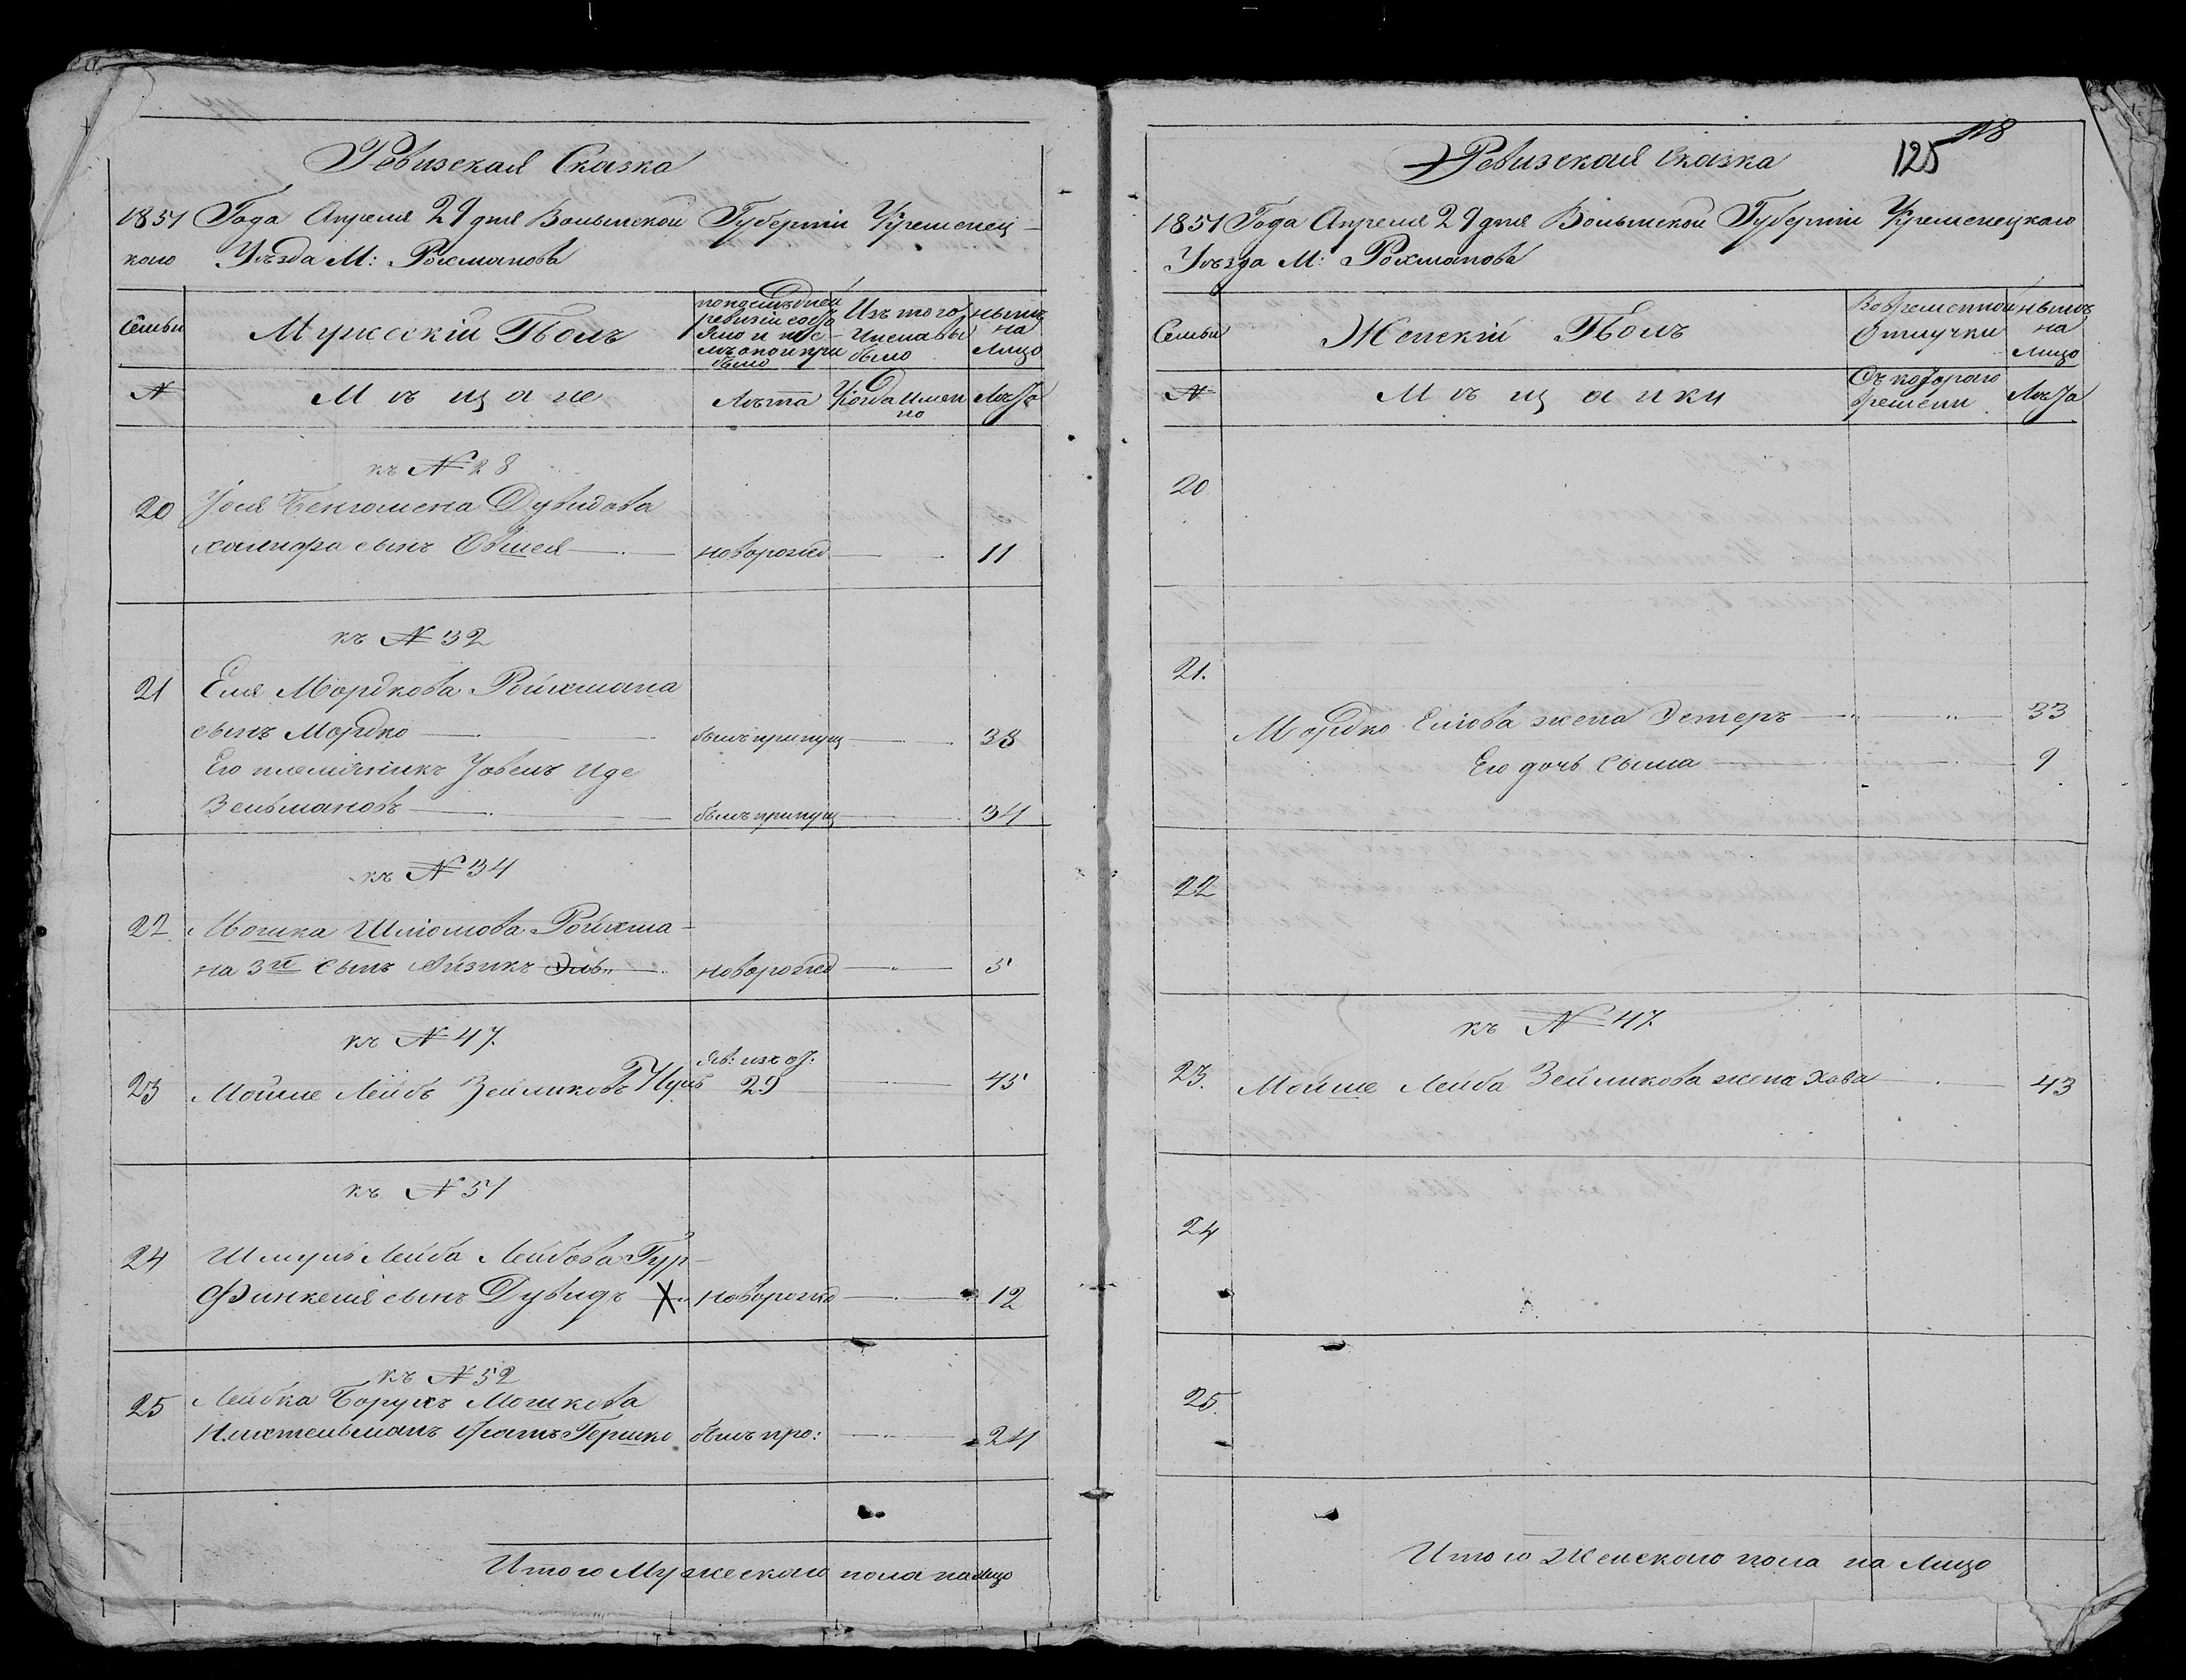 Ревизская Сказка
1851 Года Апреля 29 дня Волынской Губерніи Кременец-
каго Уѣзда М: Рохманова
Семьи
Мужескій Полъ
по послѣдной ревизіи состояло и послѣ оной прибыло
Изъ того числа выбыло
нынѣ на лицо
№
Мѣщане
Лѣта
Когда имен но
Лѣта
къ № 28
20 Іося Бенюмена Дувидова
сынъ Овшея новорожд 11
къ № 32
21 Еля Мордкова Ройхмана
сынъ Мордко былъ пропущ 33
Его племянникъ Іовель Иде
Зельмановъ былъ пропущ 34
къ № 34
22 Мошка Шліомова Ройхма-
на 3й сынъ Айзикъ новорожд 5
къ № 47.
Яв: изъ
23 Мойше Лейбъ Зейликовъ 29 45
къ № 51
24 Шмуль Лейба Лейбова Гур-
финкеля сынъ Дувидъ X новорожд 12
къ № 52
25 Лейбка Борухъ Мошкова
братъ Гершко былъ про: 24
Итого Мужескаго пола на лицо
118
125
Ревизская Сказка
1851 Года Апреля 29 дня Волынской Губерніи Кременецкаго
Уѣзда М: Рохманова
Семьи
Женскій Полъ
Во временной Отлучки
нынѣ на лицо
№
Мѣщанки
Съ котораго времени
Лѣта
20
21.
Мордко Еліова жена Эстеръ 33
Его дочь Сыма 9
22
къ № 47.
23. Мойше Лейба Зейликова жена Хова 43
24
25.
Итого Женскаго пола на лицо